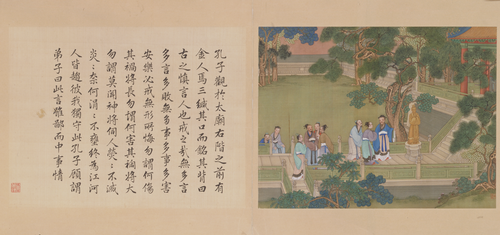 孔子觀於太廟右階之前有
金人焉三緘其口而銘其背曰
古之慎言人也戒之哉無多言
多言多敗無多事多事多害
安樂必戒無所行悔勿謂何傷
其禍將長勿謂何害其禍將大
勿謂莫聞神將伺人熒々不滅
炎々奈何涓々不壅終為江河
人皆趨彼我獨守此孔子顧謂
弟子曰此言雖鄙而中事情